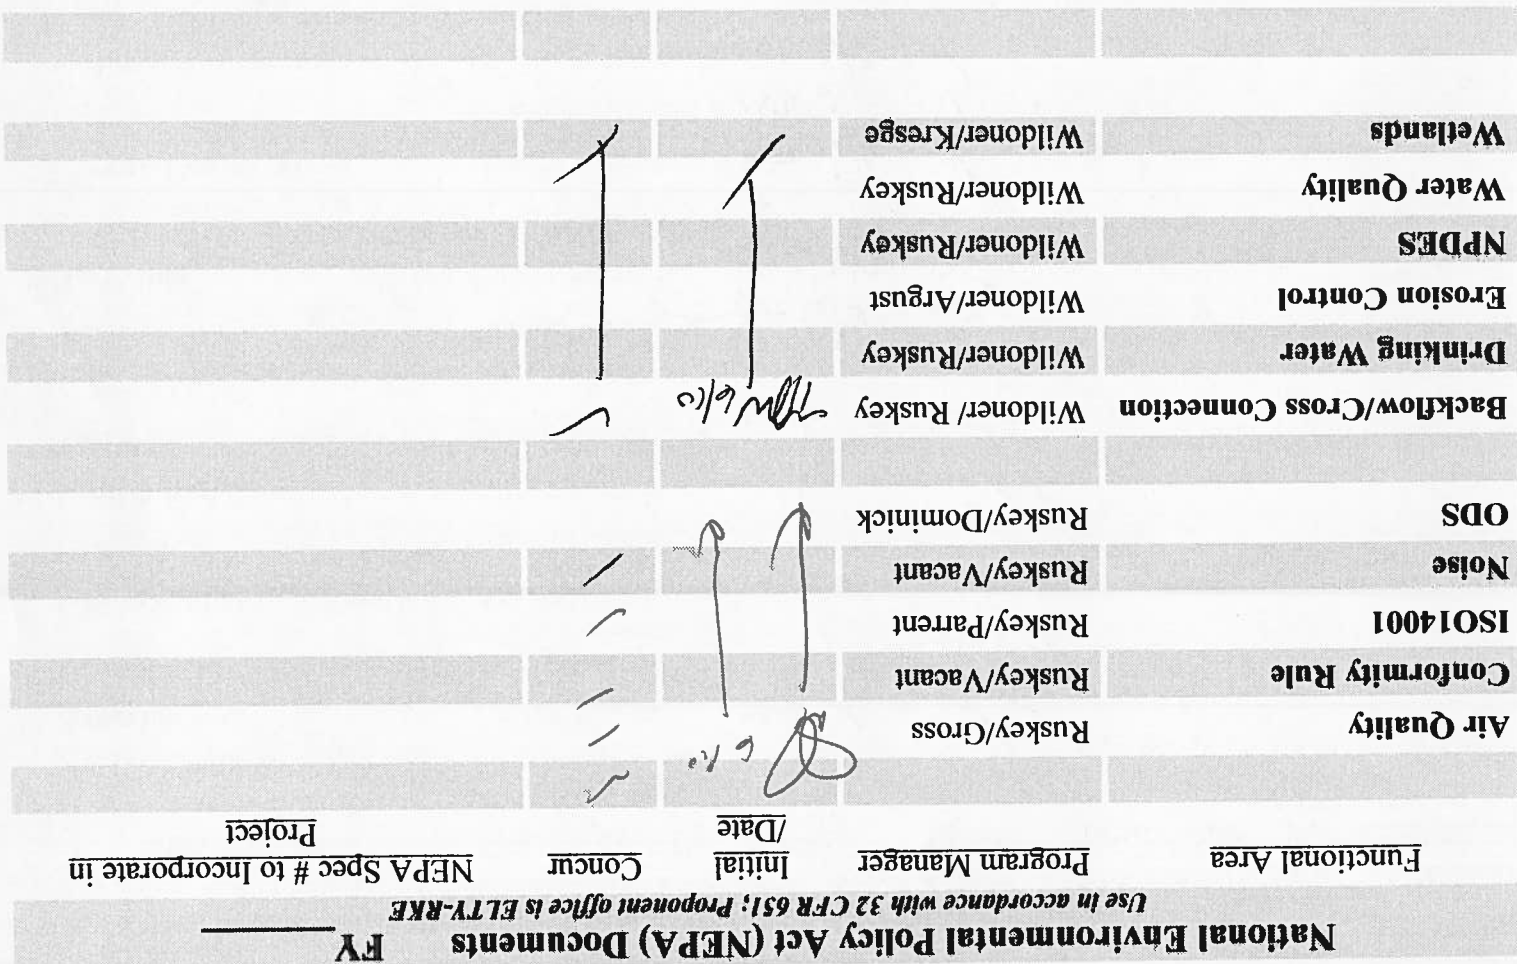 National Environmental Policy Act (NEPA) Documents FY
Use in accordance with 32 CFR 651; Proponent office is ELTY-RKE
Functional Area Program Manager Initial /Date Concur NEPA Spec # to Incorporate in Project
Air Quality Ruskey/Gross
Conformity Rule Ruskey/Vacant
ISO14001 Ruskey/Parrent
Noise Ruskey/Vacant
ODS Ruskey/Dominick
Backflow/Cross Connection Wildoner/ Ruskey
Drinking Water Wildoner/Ruskey
Erosion Control Wildoner/Argust
NPDES Wildoner/Ruskey
Water Quality Wildoner/Ruskey
Wetlands Wildoner/Kresge